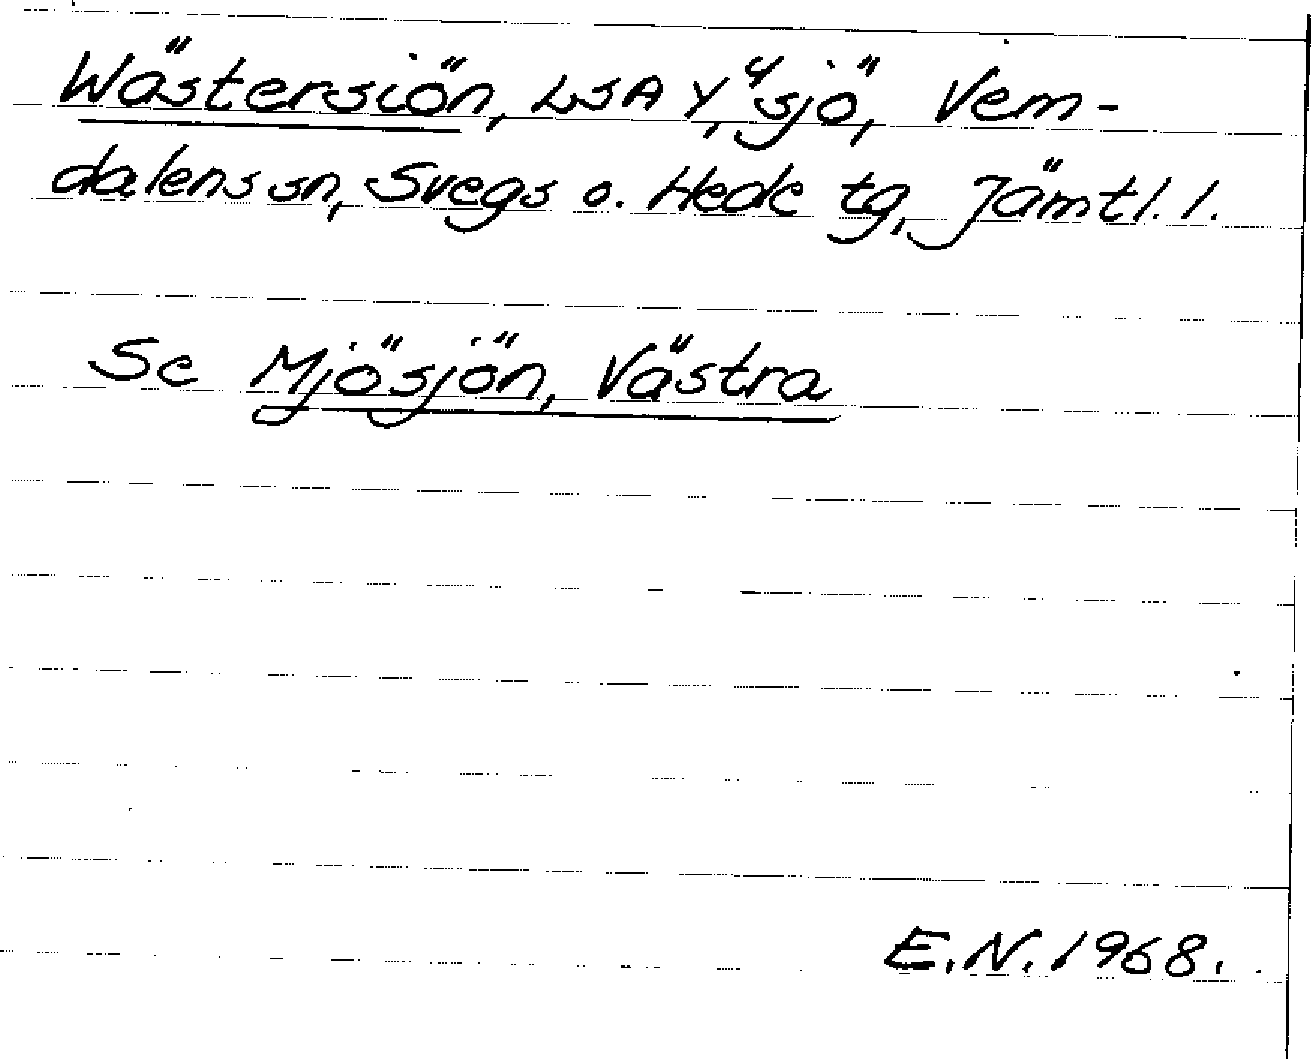 Wästersiön, LSA Y, 4 sjö, Vem-
dalens sn, Svegs o. Hede tg, Jämtl. l.
Se Mjösjön, Västra
E.N. 1968.